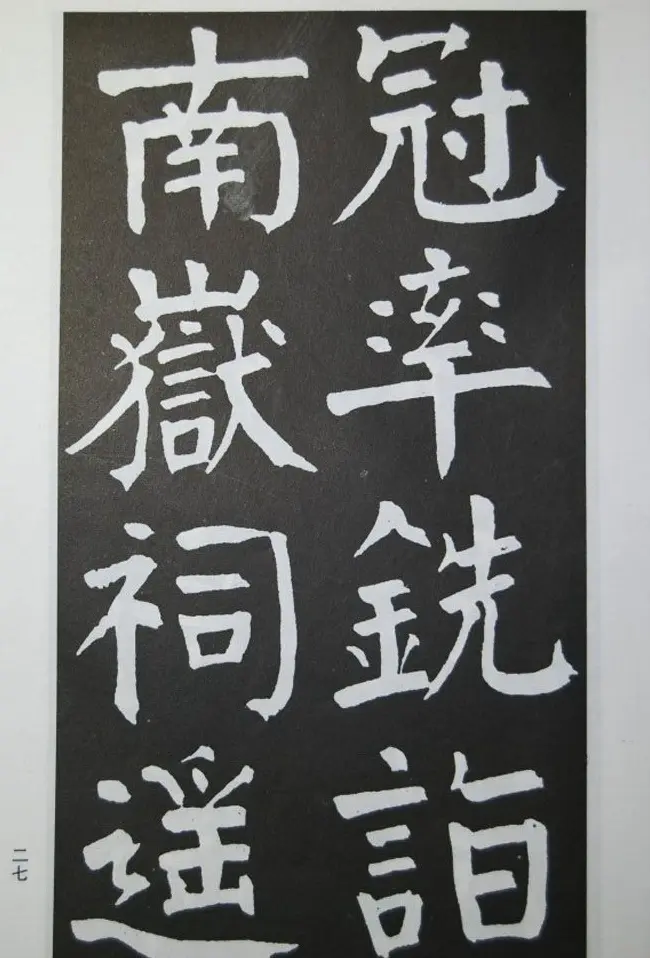 冠率銑詣
南嶽祠遥
二七